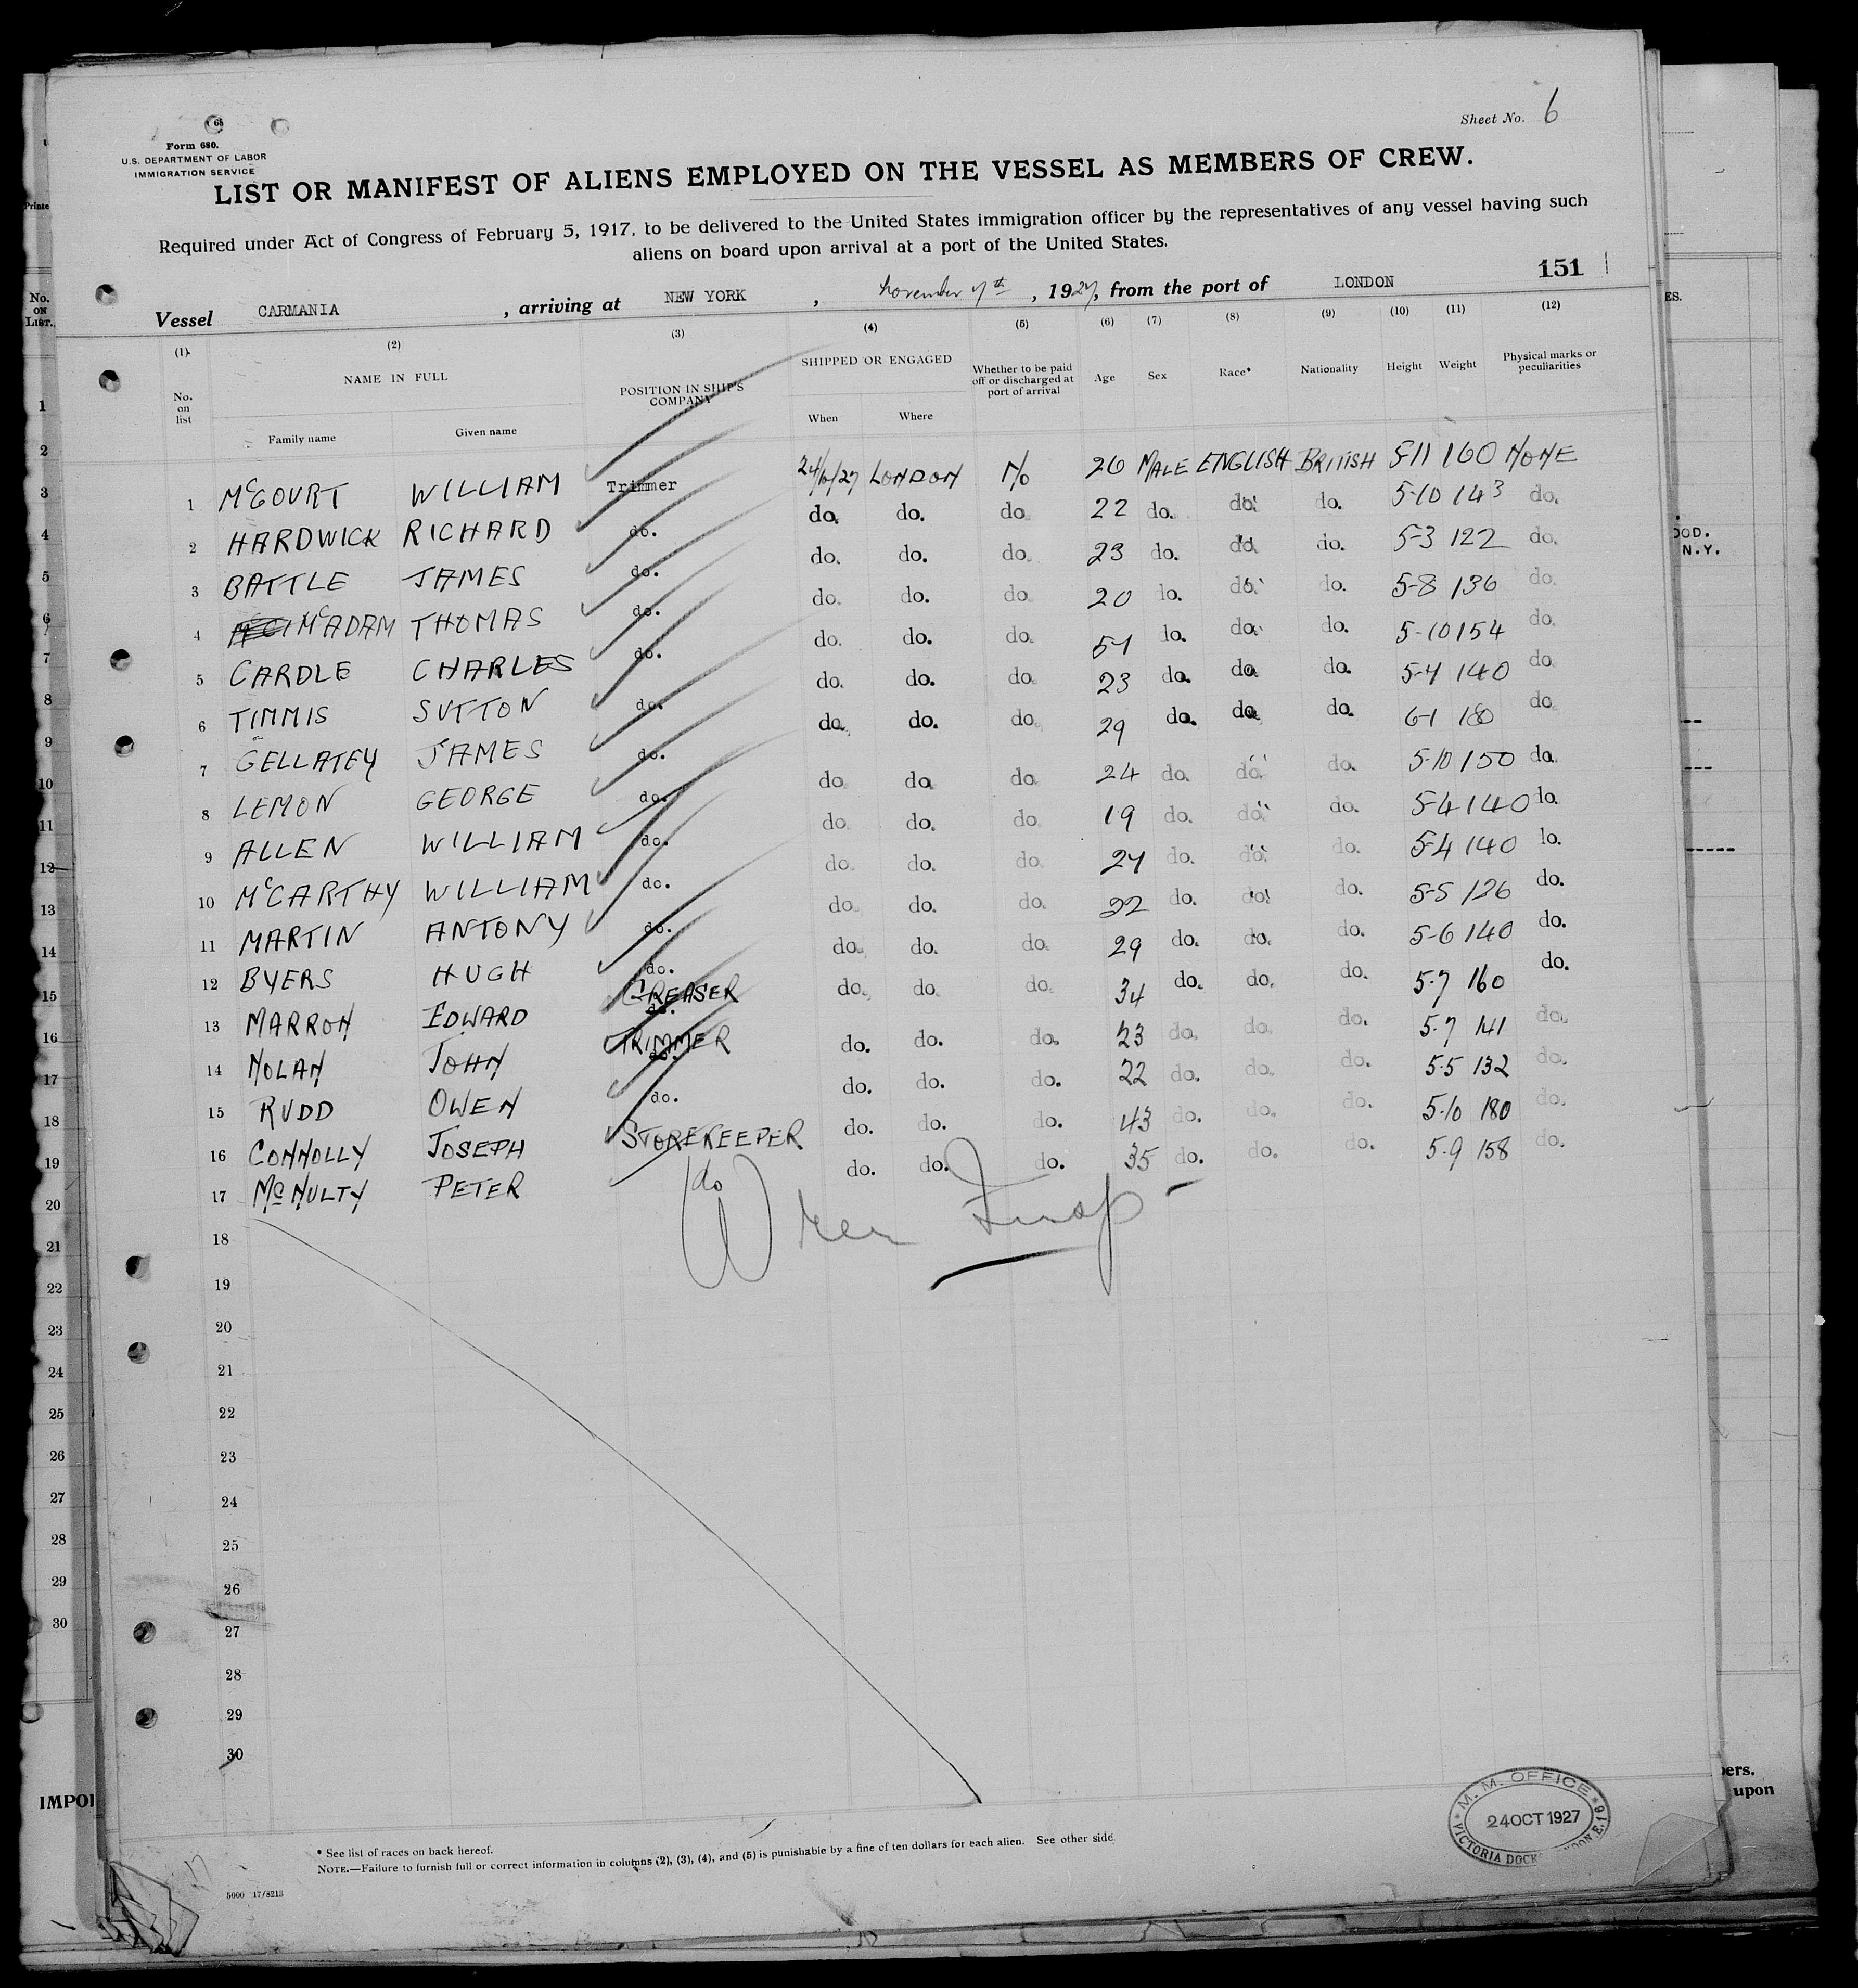 Sheet No. 6
Form 680.
U.S. DEPARTMENT OF LABOR
IMMIGRATION SERVICE
LIST OR MANIFEST OF ALIENS EMPLOYED ON THE VESSEL AS MEMBERS OF CREW.
Required under Act of Congress of February 5, 1917, to be delivered to the United States immigration officer by the representatives of any vessel having such
aliens on board upon arrival at a port of the United States.
151
Vessel CARMANIA, arriving at NEW YORK, November 7th, 1927, from the port of LONDON
(1) (2) (3) (4) (5) (6) (7) (8) (9) (10) (11) (12)
No. on list NAME IN FULL POSITION IN SHIP'S COMPANY SHIPPED OR ENGAGED Whether to be paid off or discharged at port of arrival Age Sex Race* Nationality Height Weight Physical marks or peculiarities
Family name Given name When Where
1 McGOURT WILLIAM Trimmer 24/6/27 LONDON No 26 MALE ENGLISH BRITISH 5-11 160 NONE
2 HARDWICK RICHARD do. do. do. do. 22 do. do. do. 5-10 143 do.
3 BATTLE JAMES do. do. do. do. 23 do. do. do. 5-3 122 do.
4 McADAM THOMAS do. do. do. do. 20 do. do. do. 5-8 136 do.
5 CARDLE CHARLES do. do. do. do. 51 do. do. do. 5-10 154 do.
6 TIMMIS SUTTON do. do. do. do. 23 do. do. do. 5-4 140 do.
7 GELLATEY JAMES do. do. do. do. 29 do. do. do. 6-1 180 do.
8 LEMON GEORGE do. do. do. do. 24 do. do. do. 5-10 150 do.
9 ALLEN WILLIAM do. do. do. do. 19 do. do. do. 5-4 140 do.
10 McCARTHY WILLIAM do. do. do. do. 27 do. do. do. 5-4 140 do.
11 MARTIN ANTONY do. do. do. do. 22 do. do. do. 5-5 126 do.
12 BYERS HUGH do. do. do. do. 29 do. do. do. 5-6 140 do.
13 MARRON EDWARD GREASER do. do. do. 34 do. do. do. 5-7 160 do.
14 NOLAN JOHN TRIMMER do. do. do. 23 do. do. do. 5-7 141 do.
15 RUDD OWEN do. do. do. do. 22 do. do. do. 5-5 132 do.
16 CONNOLLY JOSEPH STOREKEEPER do. do. do. 43 do. do. do. 5-10 180 do.
17 McNULTY PETER do do. do. do. 35 do. do. do. 5-9 158 do.
18
19
20
21
22
23
24
25
26
27
28
29
30
M. M. OFFICE
24 OCT 1927
VICTORIA DOCK LONDON E.16
* See list of races on back hereof.
NOTE.—Failure to furnish full or correct information in columns (2), (3), (4), and (5) is punishable by a fine of ten dollars for each alien. See other side.
5000 17/8213